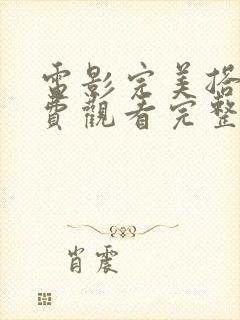 電影完美搭
費觀看完整
肖震